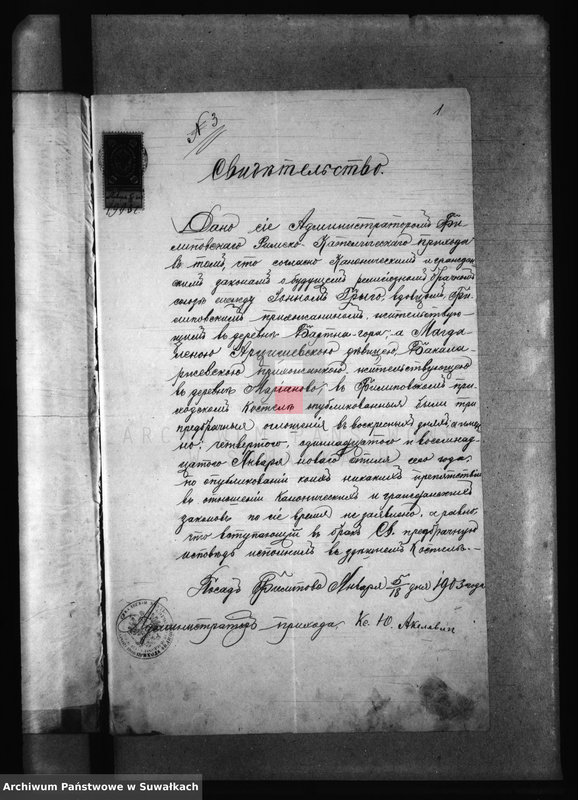 1
№ 3
Свидѣтельство.
Дано сіе Администраторомъ Фи-
липовскаго Римско-Католическаго прихода
въ томъ, что согласно Каноническимъ и граждан-
скимъ законамъ о будущемъ религіозномъ брачномъ
союзѣ между Грыго, вдовцомъ, Фи-
липовскимъ прихожаниномъ, жительствую-
щимъ въ деревнѣ Бартна-гора, а Магда-
леною дѣвицею, Бакала-
ржевскою прихожанкою, жительствующею
въ деревнѣ Маріаново, въ Филиповскомъ при-
ходскомъ Костелѣ опубликованныя были три
предбрачныя оглашенія въ воскресные дни, а имен-
но: четвертого, одиннадцатого и восемнад-
цатого Января новаго стиля сего года,
по опубликованіи коихъ никакихъ препятствій
въ отношеніи Каноническихъ и гражданскихъ
законовъ по сіе время не заявлено, а равно
что вступающій въ бракъ Св. предбрачную
исповѣдь исполнилъ въ здѣшнемъ Костелѣ.-
Посадъ Филипово Января 5/18 дня 1903 года
Администраторъ прихода, Кс. Ю. Акелевич
ARC
Archiwum Państwowe w Suwałkach